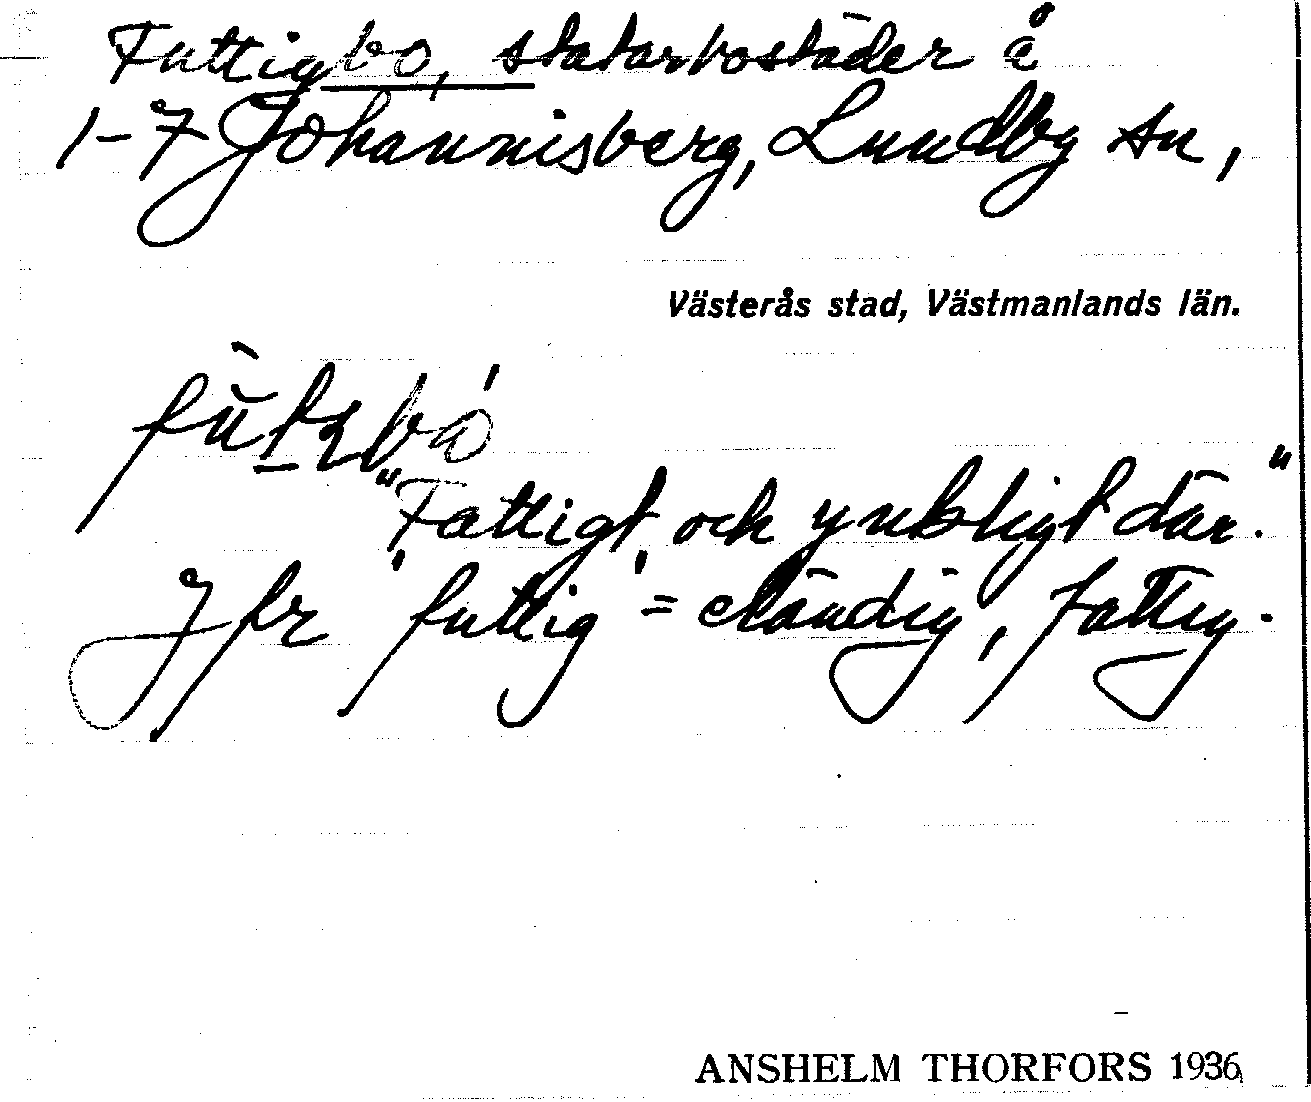 Futtigbo, statarbostäder å
1-7 Johannisberg, Lundby sn,
Västerås stad, Västmanlands län.
"Fattigt och ynkligt där."
Jfr 'futtig' = eländig, fattig.
ANSHELM THORFORS 1936